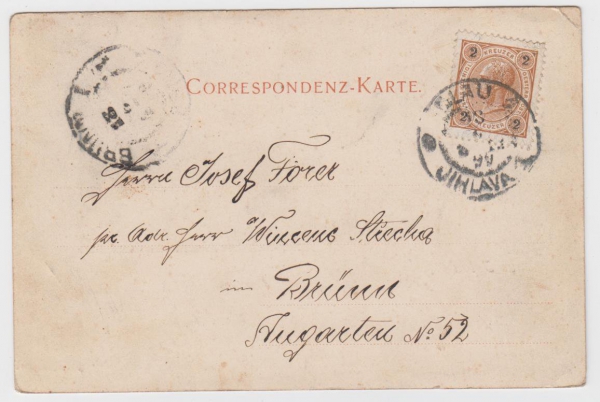 CORRESPONDENZ-KARTE.
2 KREUZER 2
2 2
IGLAU
JIHLAVA
BRÜNN 1
Herrn Josef Forer
pr. Adr. Herr Winzenz Stecha
in Brünn
Augarten No 52